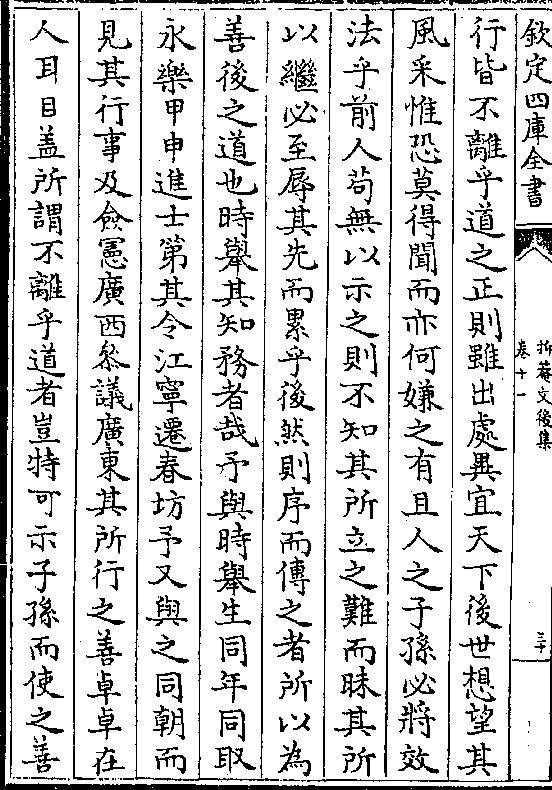 欽定四庫全書
抑菴文後集
卷十一
三十
行皆不離乎道之正則雖出處異宜天下後世想望其
風采惟恐莫得聞而亦何嫌之有且人之子孫必將效
法乎前人茍無以示之則不知其所立之難而昧其所
以繼必至辱其先而累乎後然則序而傳之者所以為
善後之道也時舉其知務者哉予與時舉生同年同取
永樂甲申進士第其令江寧遷春坊予又與之同朝而
見其行事及僉憲廣西叅議廣東其所行之善卓卓在
人耳目盖所謂不離乎道者豈特可示子孫而使之善